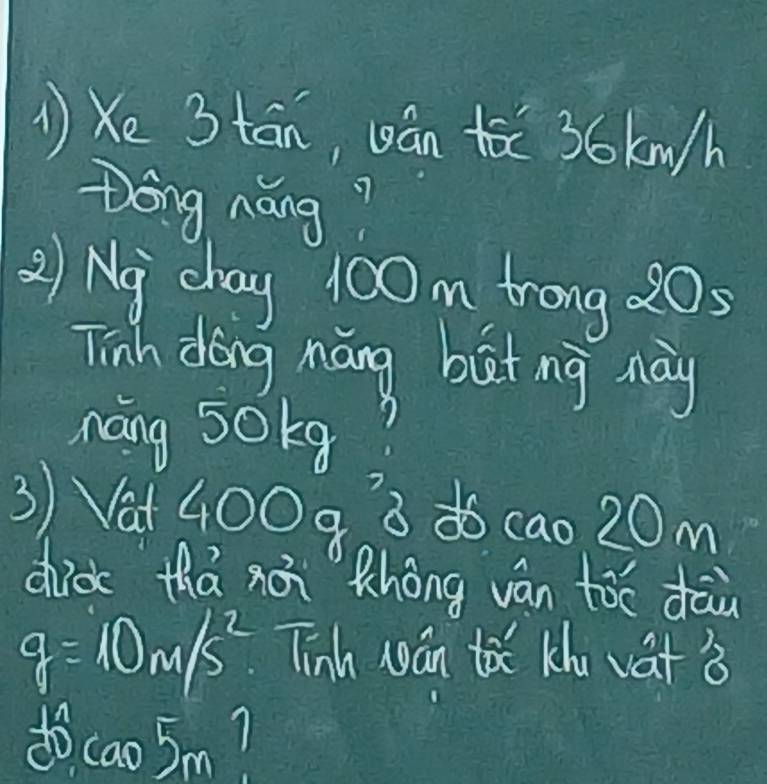 1) Xe 3 tấn, vận tốc 36km/h
Động năng ?
2) Ng̀ chạy 100m trong 20s
Tính động năng biết ng̀ này
nặng 50kg ?
3) Vật 400g ở độ cao 20m
được thả rơi không vận tốc đầu
g = 10m/s². Tính vận tốc khi vật ở
độ cao 5m ?